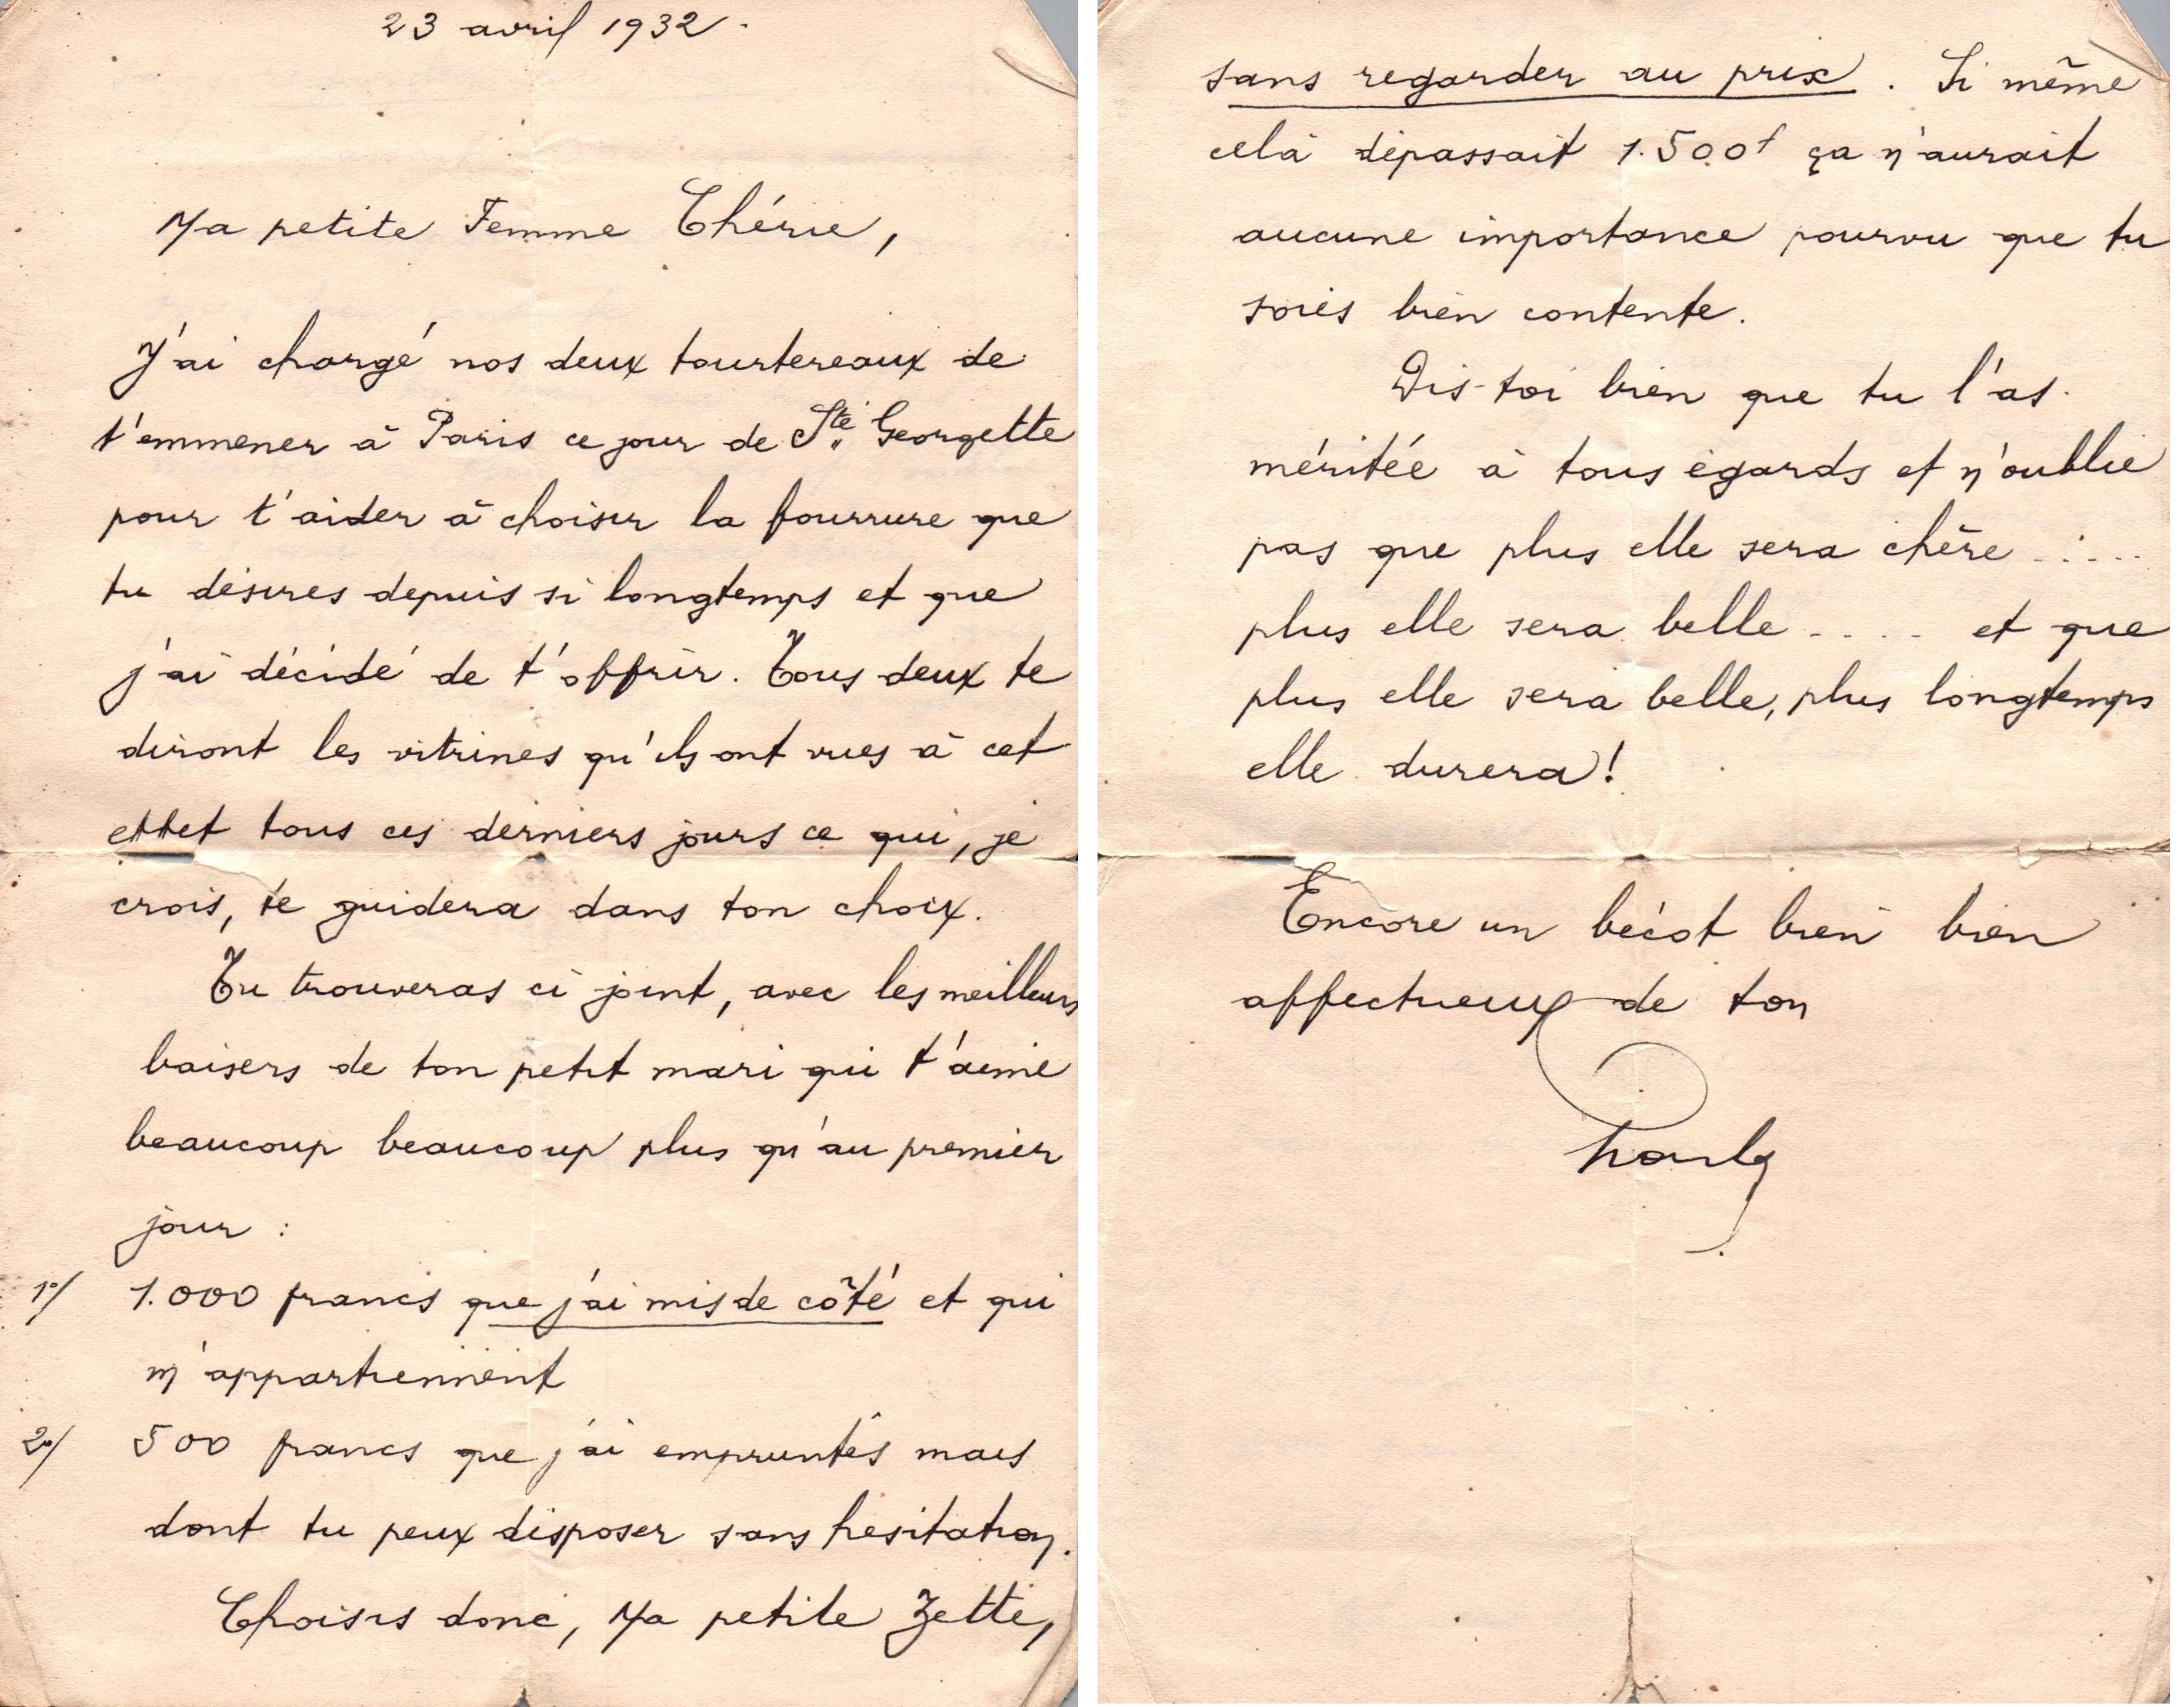 23 avril 1932.
Ma petite Femme Chérie,
J'ai chargé nos deux tourtereaux de
t'emmener à Paris ce jour de Ste Georgette
pour t'aider à choisir la fourrure que
tu désires depuis si longtemps et que
j'ai décidé de t'offrir. Tous deux te
diront les vitrines qu'ils ont vues à cet
effet tous ces derniers jours ce qui, je
crois, te guidera dans ton choix.
Tu trouveras ci joint, avec les meilleurs
baisers de ton petit mari qui t'aime
beaucoup beaucoup plus qu'au premier
jour :
1°/ 1.000 francs que j'ai mis de côté et qui
m'appartiennent
2°/ 500 francs que j'ai empruntés mais
dont tu peux disposer sans hesitation.
Choisis donc, Ma petite Zette,
sans regarder au prix. Si même
celà dépassait 1.500f ça n'aurait
aucune importance pourvu que tu
sois bien contente.
Dis-toi bien que tu l'as
méritée à tous égards et n'oublie
pas que plus elle sera chère .....
plus elle sera belle .... et que
plus elle sera belle, plus longtemps
elle durera!
Encore un bécot bien bien
affectueux de ton
Charly